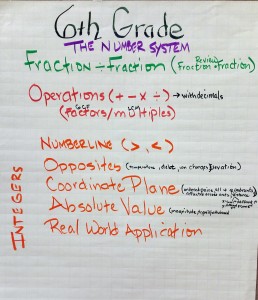 6th Grade
THE NUMBER SYSTEM
Review
Fraction ÷ Fraction (Fraction ÷ Fraction)
Operations (+ - x ÷) → with decimals
GCF LCM
(factors/multiples)
INTEGERS
Numberline (>, <)
Opposites (temperature, debt, elevation)
Coordinate Plane (ordered pairs, all 4 quadrants
distance
Absolute Value (magnitude/
Real World Application